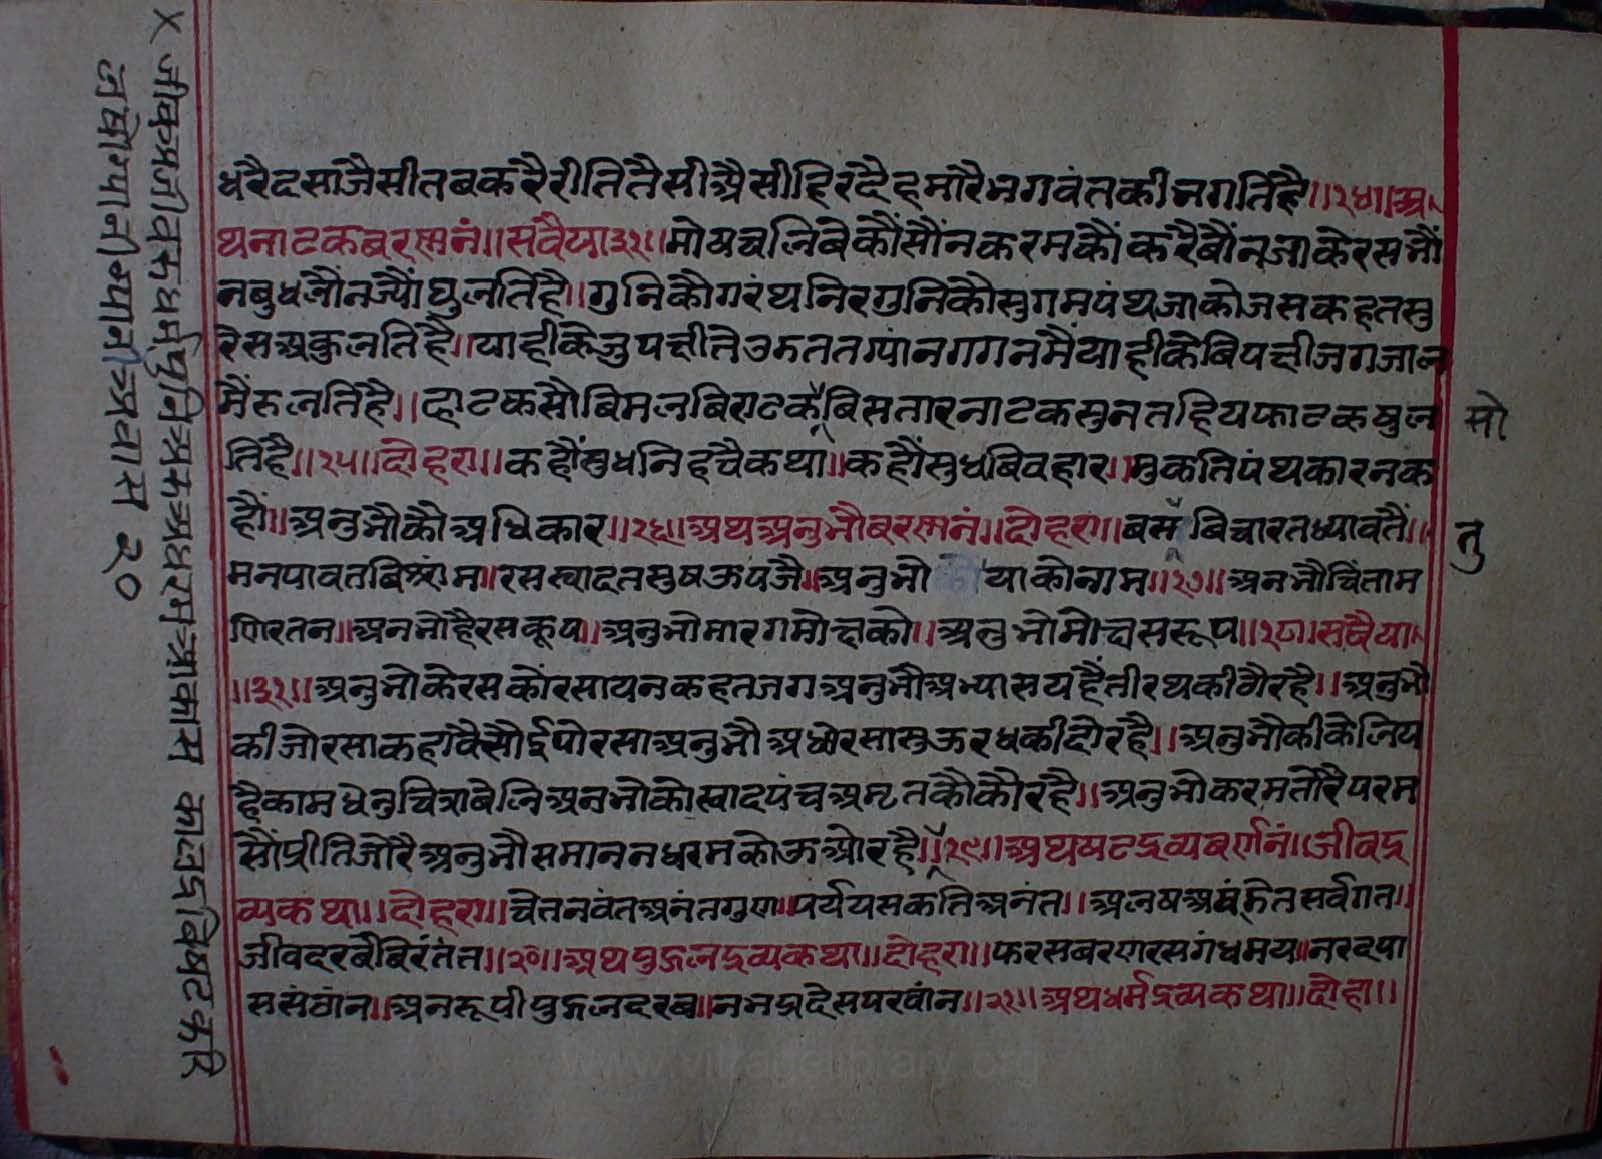 धरैदसाजैसीतबकरैरीतितैसीअैसीहिरदैहमारैभगवंतकीभगतिहै॥१४॥अ
थनाटकबरननं॥सवैया३१॥मोषचलिबेकौंसौंनकरमकौंकरैबौंनजाकेरसभौं
नबुधलौनज्यौंघुलतिहै॥गुनिकौगरंथनिरगुनिकौसुगमपंथजाकोजसकहतसु
रेसअकुलतिहै॥याहीकेजुपछीतेउडततग्यांनगगनमैंयाहीकेबिपछीजगजाल
मैंरुलतिहै॥हाटकसौबिमलबिराटकैबिसतारनाटकसुनतहियफाटकषुल
तिहै॥१५॥दोहरा॥कहौंसुधनिहचैकथा॥कहौंसुधबिवहार॥मुकतिपंथकारनक
हौं॥अनुभौकौअधिकार॥१६॥अथअनुभौबरननं॥दोहरा॥बस्तबिचारतध्यावतैं॥
मनपावतबिश्रांम॥रसस्वादतसुषऊपजै॥अनुभो याकोनाम॥१७॥अनभौचिंताम
णिरतन॥अनभौहैरसकूप॥अनुभोमारगमोछको॥अनुभोमोछसरूप॥१८॥सवैया
॥३१॥अनुभोकेरसकोंरसायनकहतजगअनुभौअभ्यासयहैंतीरथकीठौरहै॥अनुभौ
कीजोरसाकहावैसौईपोरसाअनुभौअधोरसासुऊरधकीदौरहै॥अनुभौकीकेलिय
हैकामधेनुचित्राबेलिअनभोकोस्वादपंचअमृतकौकौरहै॥अनुभोकरमतोरैपरम
सौंप्रीतिजोरैअनुभौसमाननधरमकोऊओरहै॥१९॥अथषटद्रव्यबर्णनं॥जीवद्र
व्यकथा॥दोहरा॥चेतनवंतअनंतगुण॥पर्ययसकतिअनंत॥अलषअषंडितसर्वगत॥
जीवदरबबिरतंत॥२०॥अथपुद्गलद्रव्यकथा॥दोहरा॥फरसबरणरसगंधमय॥नरदपा
ससंठांन॥अनरूपीपुद्गलदरब॥नभप्रदेसपरवांन॥२१॥अथधर्मद्रव्यकथा॥दोहा॥
मो
नु
X जीवअजीवरुधर्मपुनिअरुअधरमआकास कालद्रविषटकरि
लषौग्यानीग्यानअवास २०
www.vitragelibrary.org